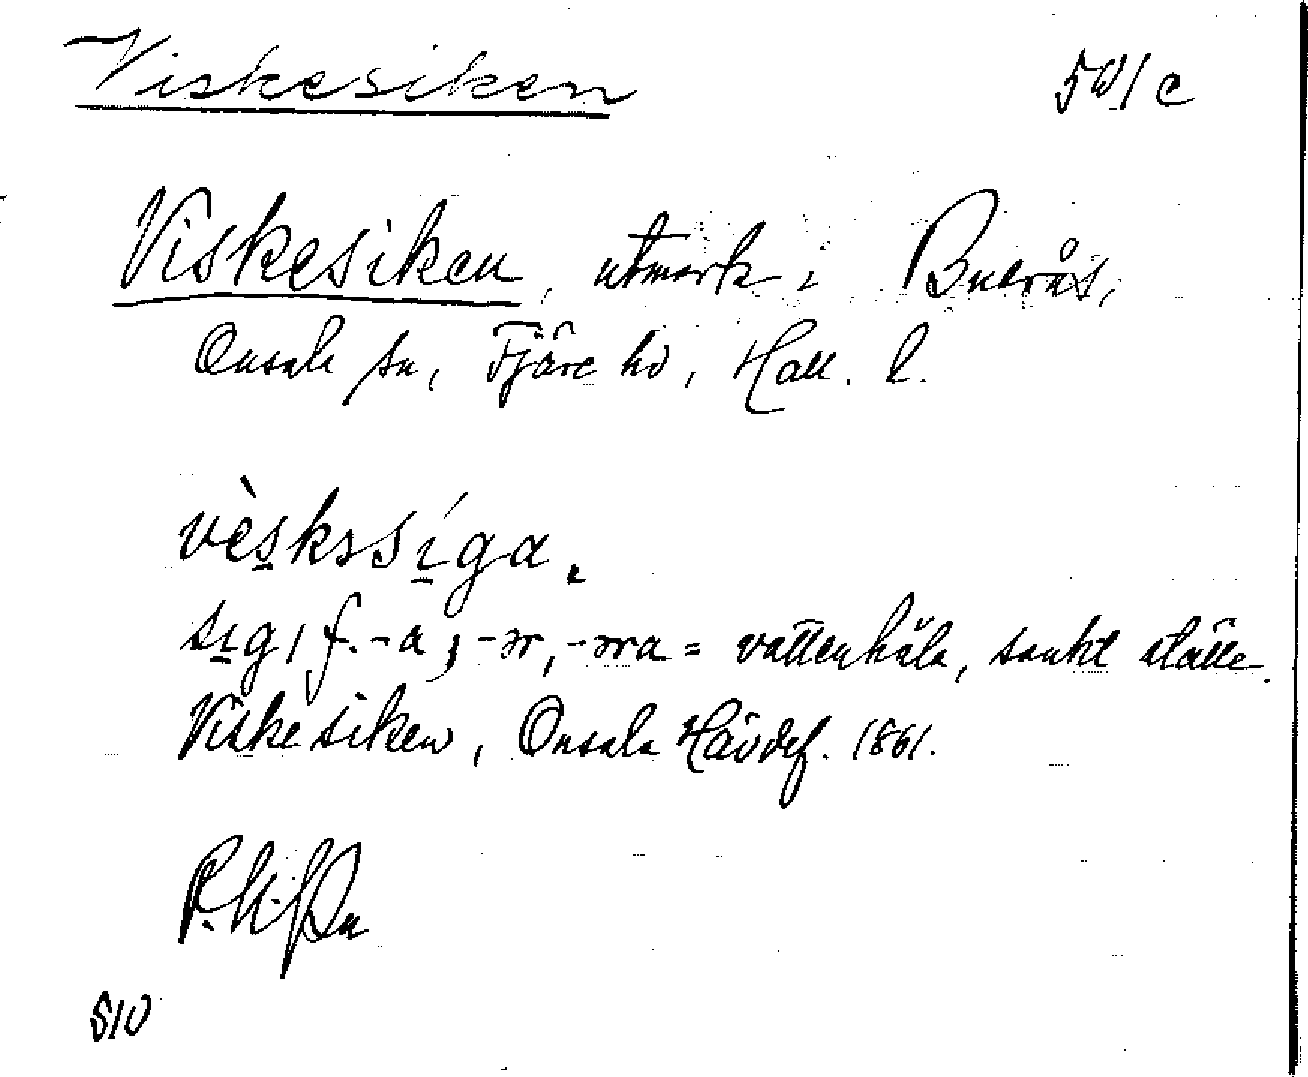 Viskesiken
Viskesiken, utmark i Buerås,
Onsala sn, Fjäre hd, Hall. l.
vèskəsíga.
sig, f. -a; -ər, -əra = vattenhåla, sankt ställe.
Viskesiken, Onsala Hävdef. 1861.